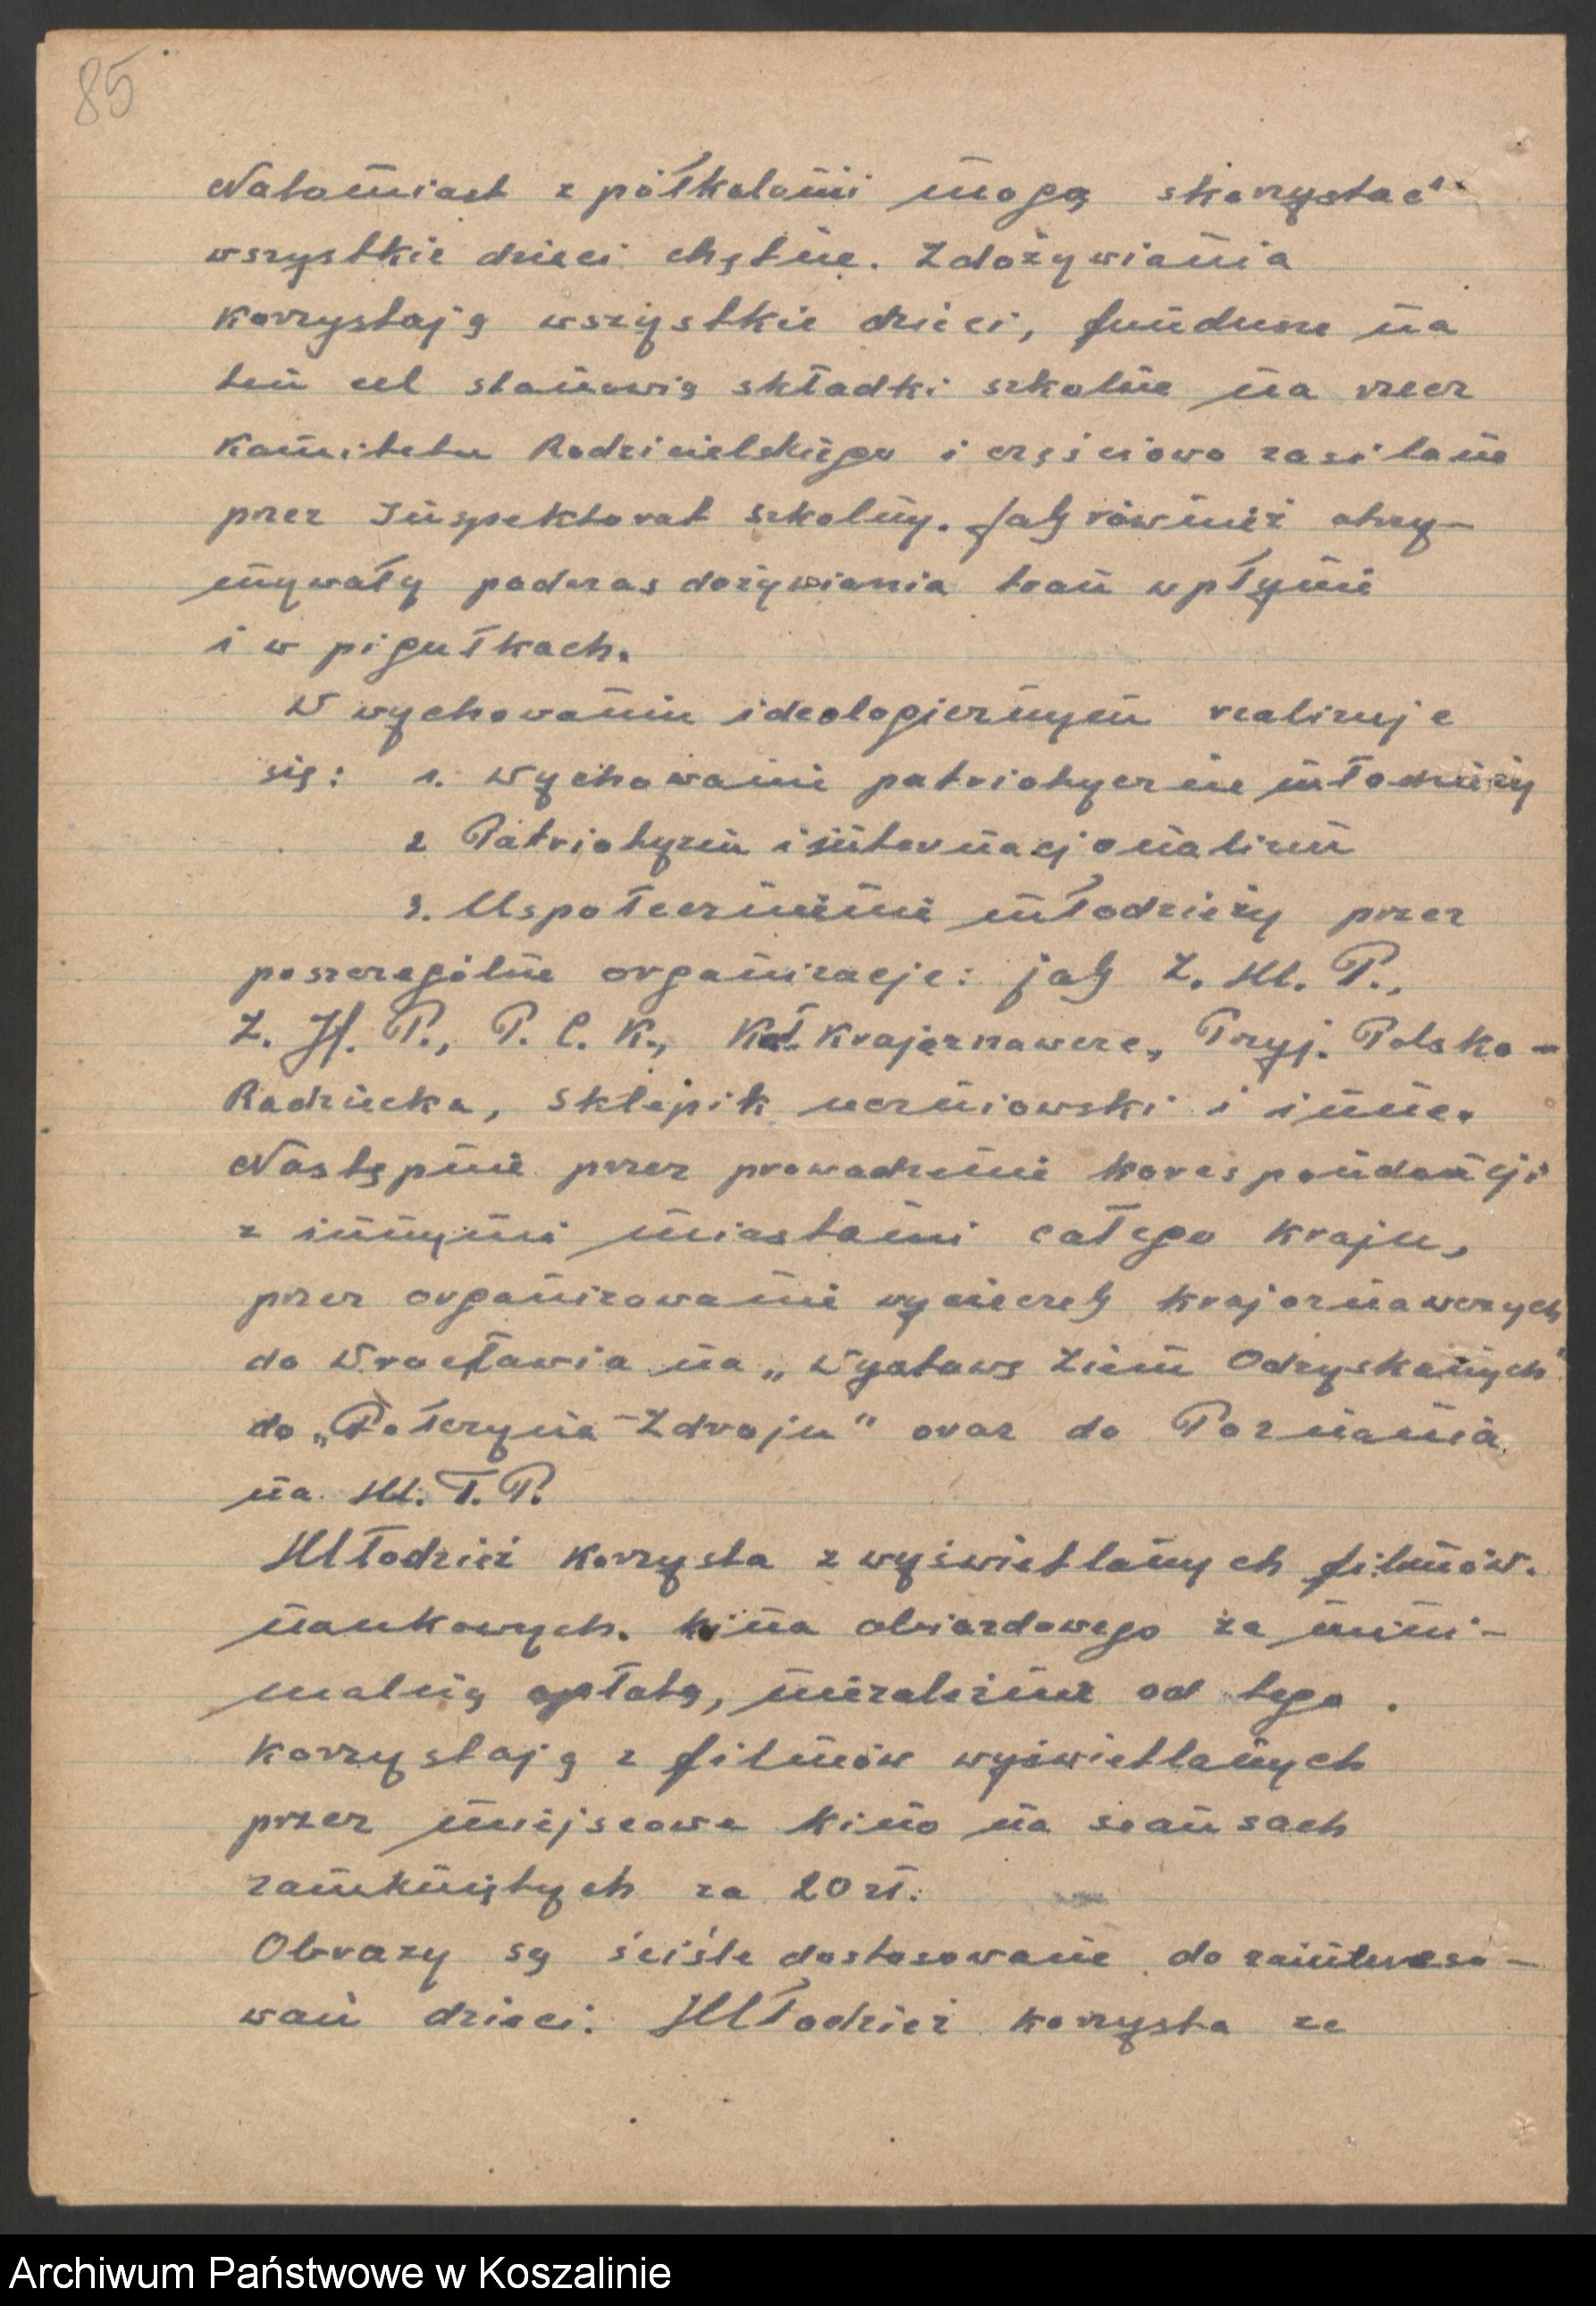 85
Natomiast z półkolonii mogą skorzystać
wszystkie dzieci chętne. Z dożywiania
korzystają wszystkie dzieci, fundusze na
ten cel stanowią składki szkolne na rzecz
Komitetu Rodzicielskiego i częściowo zasilane
przez Inspektorat szkolny. Jak również otrzy-
mywały podczas dożywiania tran w płynie
i w pigułkach.
W wychowaniu ideologicznym realizuje
się: 1. Wychowanie patriotyczne młodzieży
2 Patriotyzm i internacjonalizm
3. Uspołecznienie młodzieży przez
poszczególne organizacje: jak Z. M. P.,
Z. H. P., P. C. K., Koł. Krajoznawcze, Przyj. Polsko-
Radziecka, sklepik uczniowski i inne.
Następnie przez prowadzenie korespondencji
z innymi miastami całego kraju,
przez organizowanie wycieczek krajoznawczych
do Wrocławia na „Wystawę Ziem Odzyskanych"
do „Połczyna-Zdroju" oraz do Poznania
na M. T. P.
Młodzież korzysta z wyświetlanych filmów
naukowych. kina objazdowego za mini-
malną opłatą, niezależnie od tego
korzystają z filmów wyświetlanych
przez miejscowe kino na seansach
zamkniętych za 20 zł.
Obrazy są ściśle dostosowane do zaintereso-
wań dzieci. Młodzież korzysta ze
Archiwum Państwowe w Koszalinie